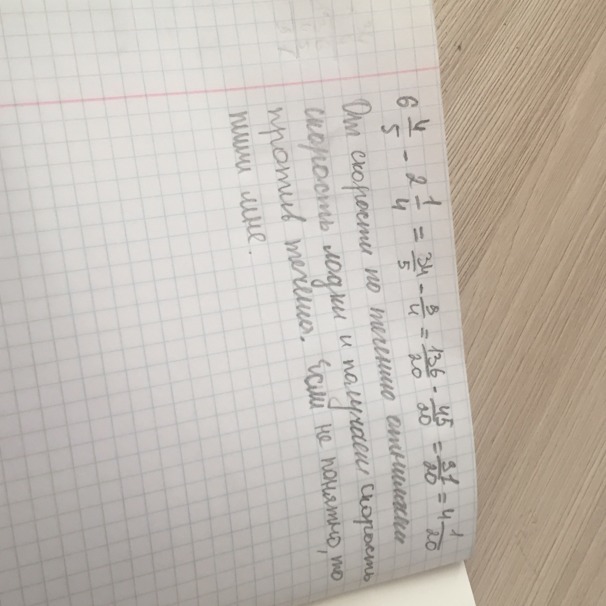 6 4/5 - 2 1/4 = 34/5 - 9/4 = 136/20 - 45/20 = 91/20 = 4 1/20
От скорости по течению отнимаем
скорость лодки и получаем скорость
против течения. Если не понятно, то
пиши мне.